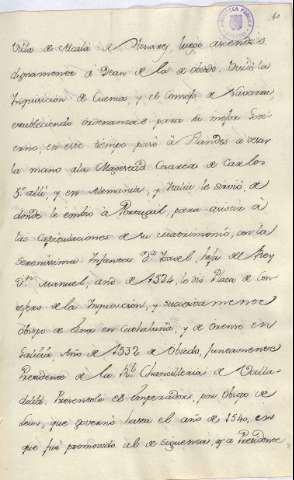 Villa de Alcalá de Henares, luego ascendió
dignamente á Dean de la de Obiedo. Visitó la
Inquisicion de Cuenca, y el Consejo de Navarra,
estableciendo ordenanzas para su mejor Gov
ierno, en este tiempo pasó á Flandes á vesar
la mano ala Magestad Cesarea de Carlos
5º allí, y en Alemania, y Italia le sirvió, de
donde le embió á Portugal, para asistir á
las Capitulaciones de su matrimonio, con la
serenisima Infanta Dª Isavel hija del Rey
Dn. Manuel, año de 1524, le dió Plaza de Con
sejero de la Inquisicion, y sucesivamente
Obispo de Elna en Cataluña, y de Orense en
Galicia, Año de 1532 de Obiedo, juntamente
Presidente de la Rl. Chancilleria de Valla
dolid. Presentolo el Emperador, por Obispo de
Leon, que governó hasta el año de 1540, en
que fué promovido al de Siguenza, y a Presidente